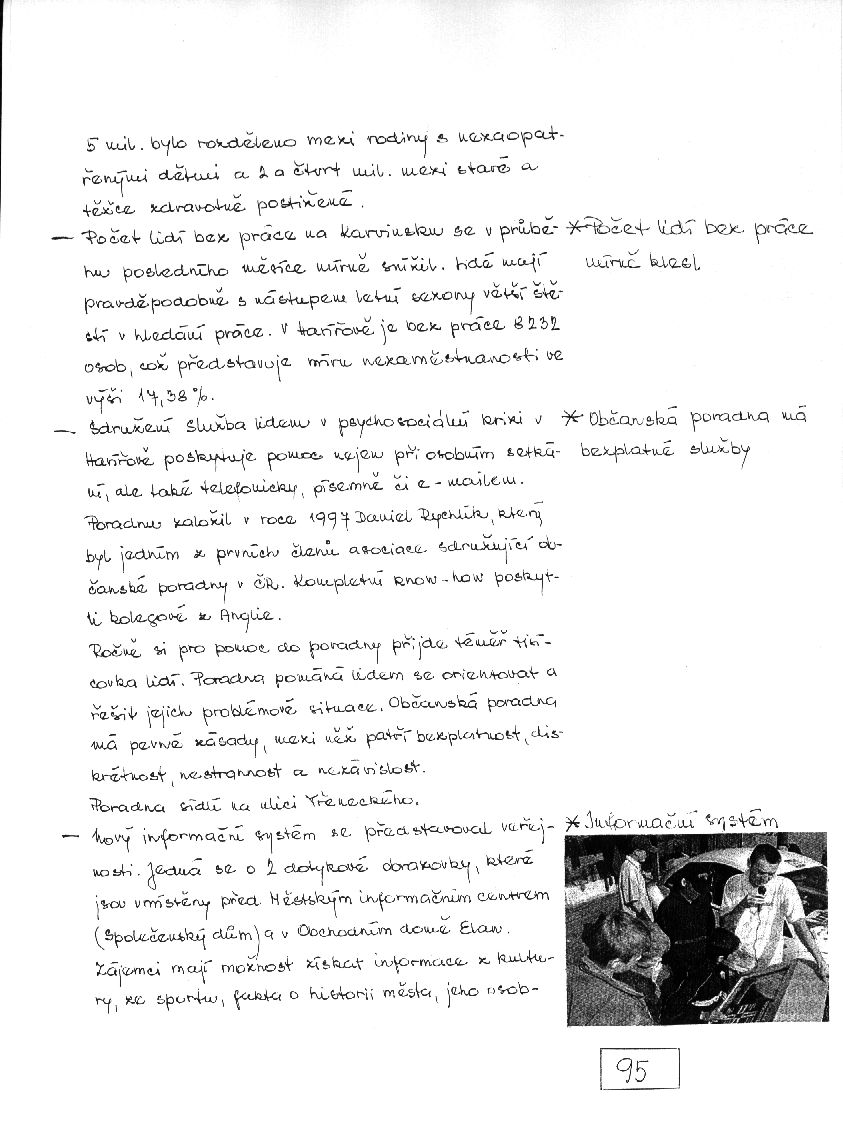 5 mil. bylo rozděleno mezi rodiny s nezaopat-
řenými dětmi a 2 a čtvrt mil. mezi staré a
těžce zdravotně postižené.
— Počet lidí bez práce na Karvinsku se v průbě-
hu posledního měsíce mírně snížil. Lidé mají
pravděpodobně s nástupem letní sezony větší ště-
stí v hledání práce. V Havířově je bez práce 8232
osob, což představuje míru nezaměstnanosti ve
výši 17,38%.
— Sdružení služba lidem v psychosociální krizi v
Havířově poskytuje pomoc nejen při osobním setká-
ní, ale také telefonicky, písemně či e-mailem.
Poradnu založil v roce 1997 Daniel Rychlík, který
byl jedním z prvních členů asociace sdružující ob-
čanské poradny v ČR. Kompletní know-how poskyt-
li kolegové z Anglie.
Ročně si pro pomoc do poradny přijde téměř tisí-
covka lidí. Poradna pomáhá lidem se orientovat a
řešit jejich problémové situace. Občanská poradna
má pevné zásady, mezi něž patří bezplatnost, dis-
krétnost, nestrannost a nezávislost.
Poradna sídlí na ulici Vřeneckého.
— Nový informační systém se představoval veřej-
nosti. Jedná se o 2 dotykové obrazovky, které
jsou umístěny před Městským informačním centrem
(Společenský dům) a v Obchodním domě Elan.
Zájemci mají možnost získat informace z kultu-
ry, ze sportu, fakta o historii města, jeho osob-
* Počet lidí bez práce
mírně klesl
* Občanská poradna má
bezplatné služby
* Informační systém
95